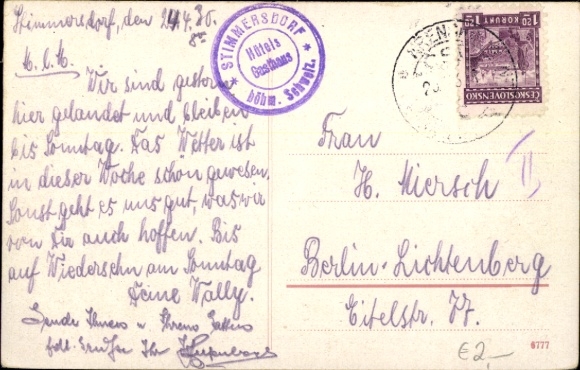 Stimmersdorf, den 24.4.30.
M. l. M.
Wir sind gestern
hier gelandet und bleiben
bis Sonntag. Das Wetter ist
in dieser Woche schön gewesen.
Sonst geht es uns gut, was wir
von Dir auch hoffen. Bis
auf Wiedersehn am Sonntag
Deine Wally.
Sende Ihnen u Ihrem Gatten
Ihr
★ STIMMERSDORF ★
Hôtels
Gasthaus
böhm. Schweiz.
1.20 1.20
KORUNY
ČESKOSLOVENSKO
Frau
H. Miersch
II
Berlin-Lichtenberg
Eitelstr. 77.
6777
€ 2,-